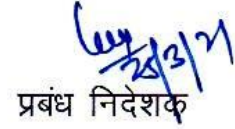 25/3/21
प्रबंध निदेशक